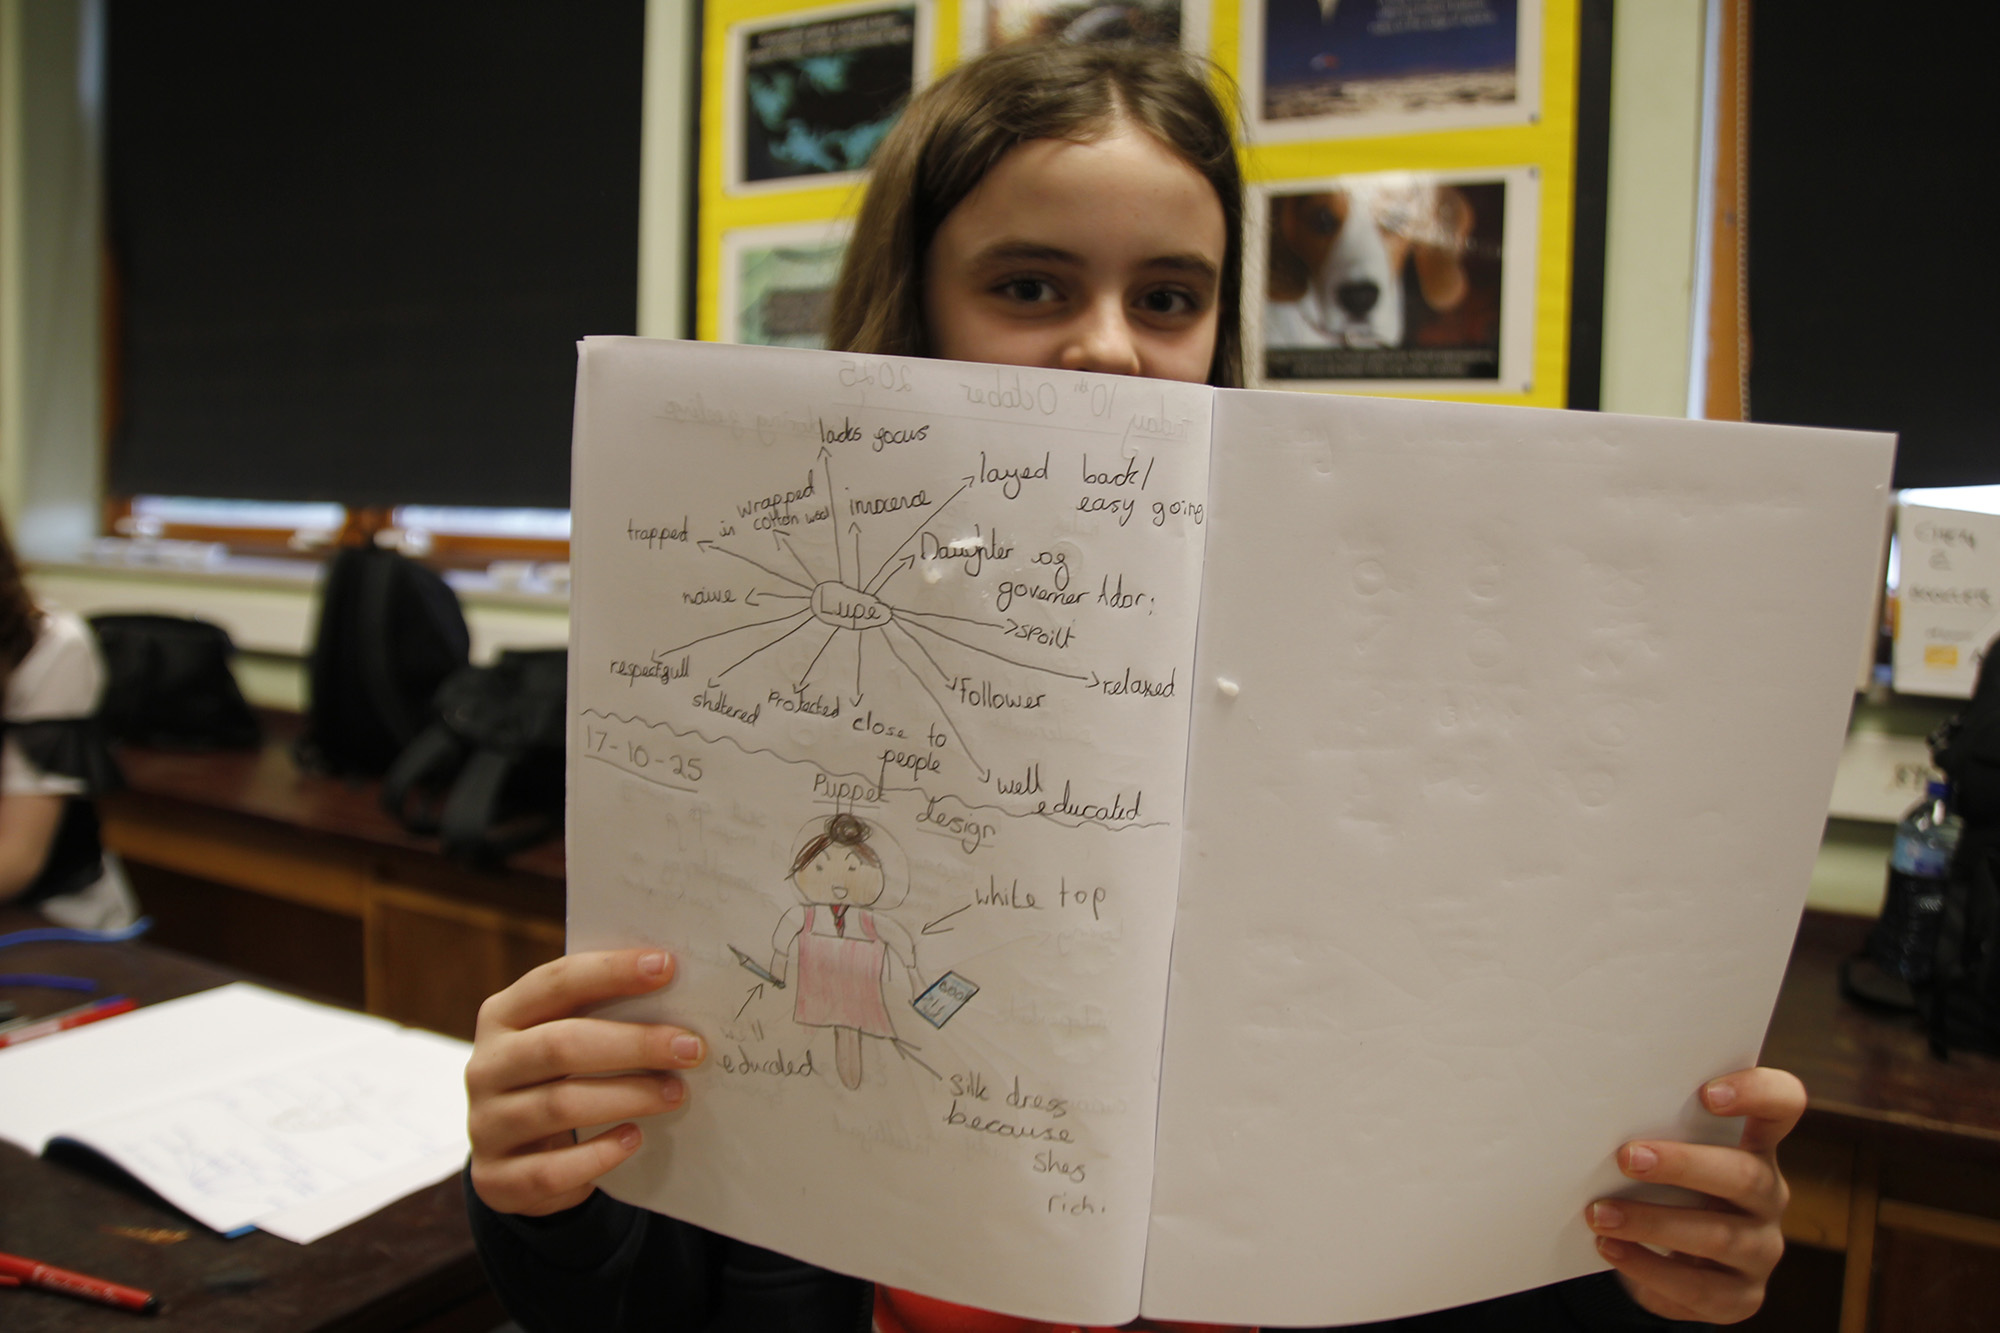 lacks focus
layed back/
easy going
wrapped
in cotton wool
innocence
trapped
Daughter of
governer Ador;
naive
Lupe
spoilt
respectfull
relaxed
sheltered
Protected
Follower
close to
people
well
educated
17-10-25
Puppet
design
white top
well
educated
Silk dress
because
shes
rich.